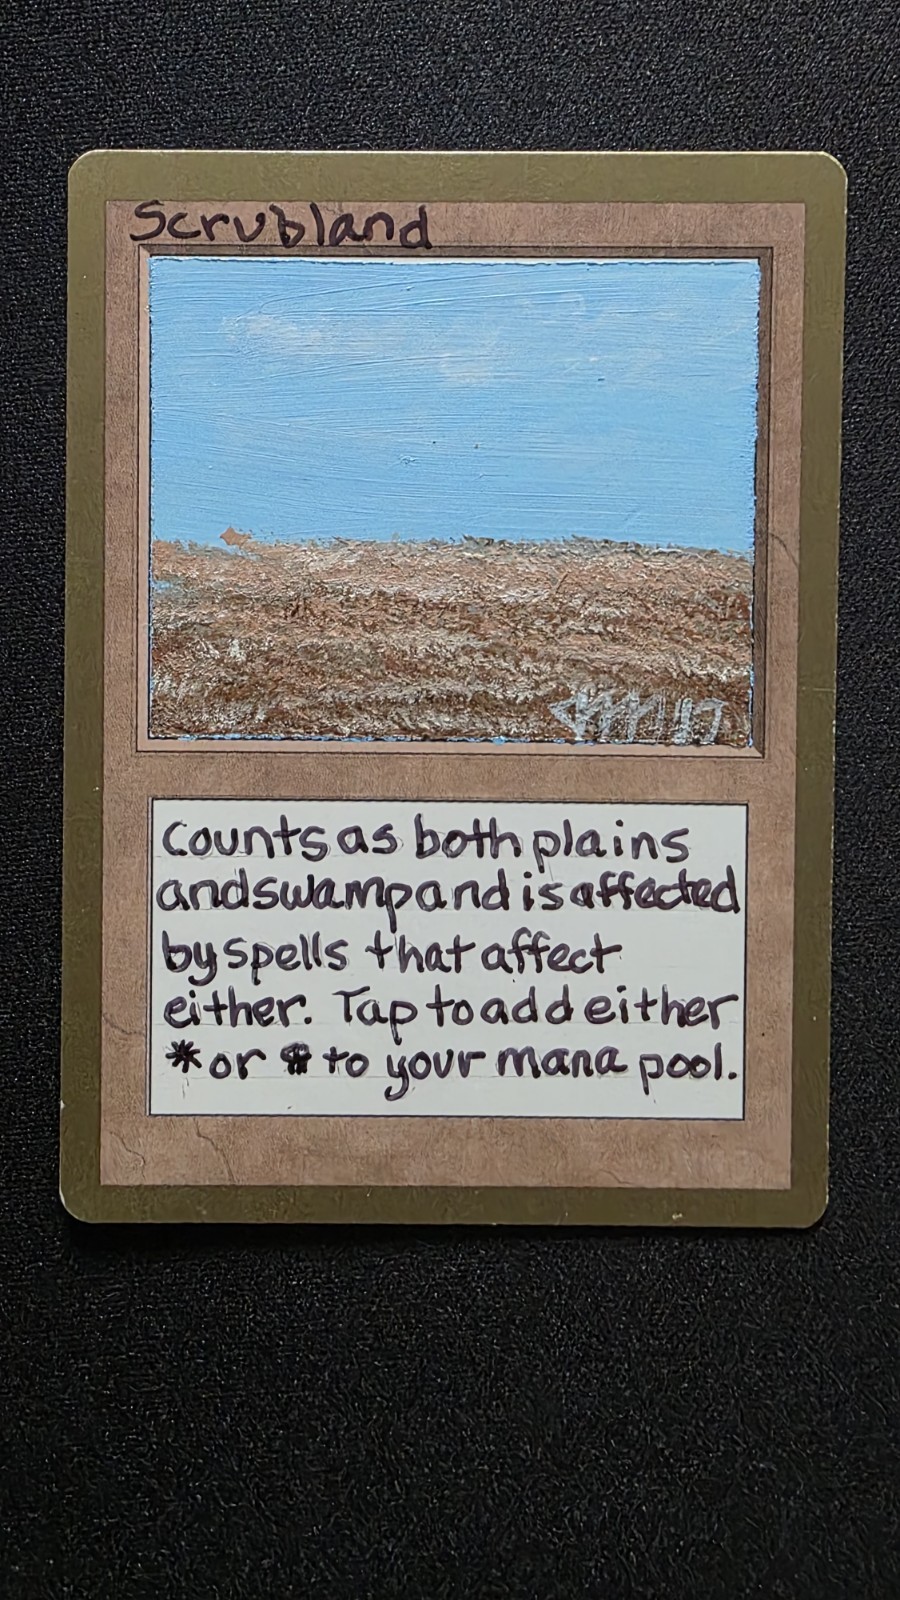 Scrubland
Counts as both plains
and swamp and is affected
by spells that affect
either. Tap to add either
or to your mana pool.